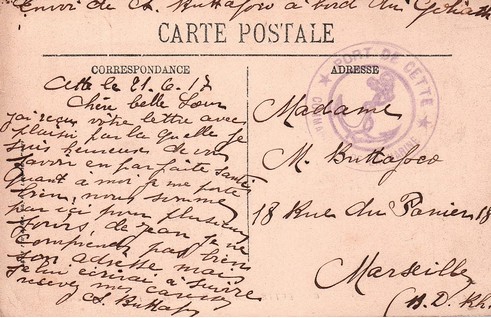 Envoi de Ch. Buttafoco a bord du Goliath
CARTE POSTALE
CORRESPONDANCE
ADRESSE
PORT DE CETTE
Cette le 21.6.17
Chère belle Sœur
j'ai reçu vôtre lettre avec
plaisir par la quelle je
suis heureuse de vous
savoir en parfaite santé
Quant à moi je me porte
bien, nous somme
par ici pour plusieurs
jours, de Jean je ne
comprend pas bien
son adresse mais
je lui écrirai à suivre
recever mes
Madame
M. Buttafoco
18 Rue du Panier 18
Marseille
(B. D. Rh.